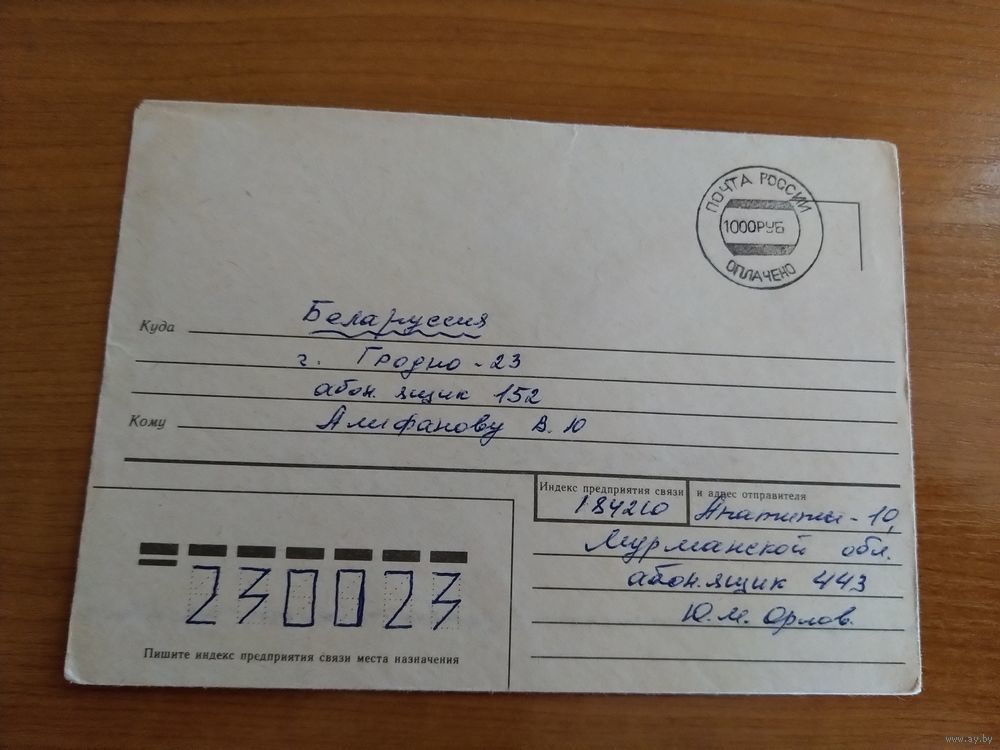 ПОЧТА РОССИИ
1000РУБ
ОПЛАЧЕНО
Куда Беларуссия
г. Гродно-23
абон. ящик 152
Кому Алифанову В. Ю
Индекс предприятия связи и адрес отправителя
184210 Апатиты-10,
Мурманской обл.
абон. ящик 443
Ю.М. Орлов.
230023
Пишите индекс предприятия связи места назначения
www.ay.by